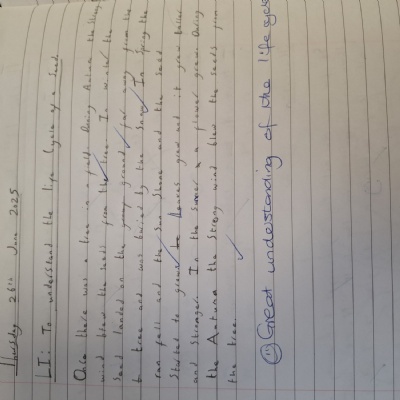 Thursday 26th June 2025
LI: To understand the life Cycle of a Seed.
Once there was a tree in a field. During Autumn the Strong
wind blew the seeds from the tree. In winter the
Seed landed on the ground far away from the
tree and was buried by the Snow. In Spring the
rain fell and the Sun Shone and the seed
Started to grow. leaves grew and it grew taller
and Stronger. In the Summer a flower grew. During
the Autumn the Strong wind blew the seeds from
the tree.
Great understanding of the life cycle